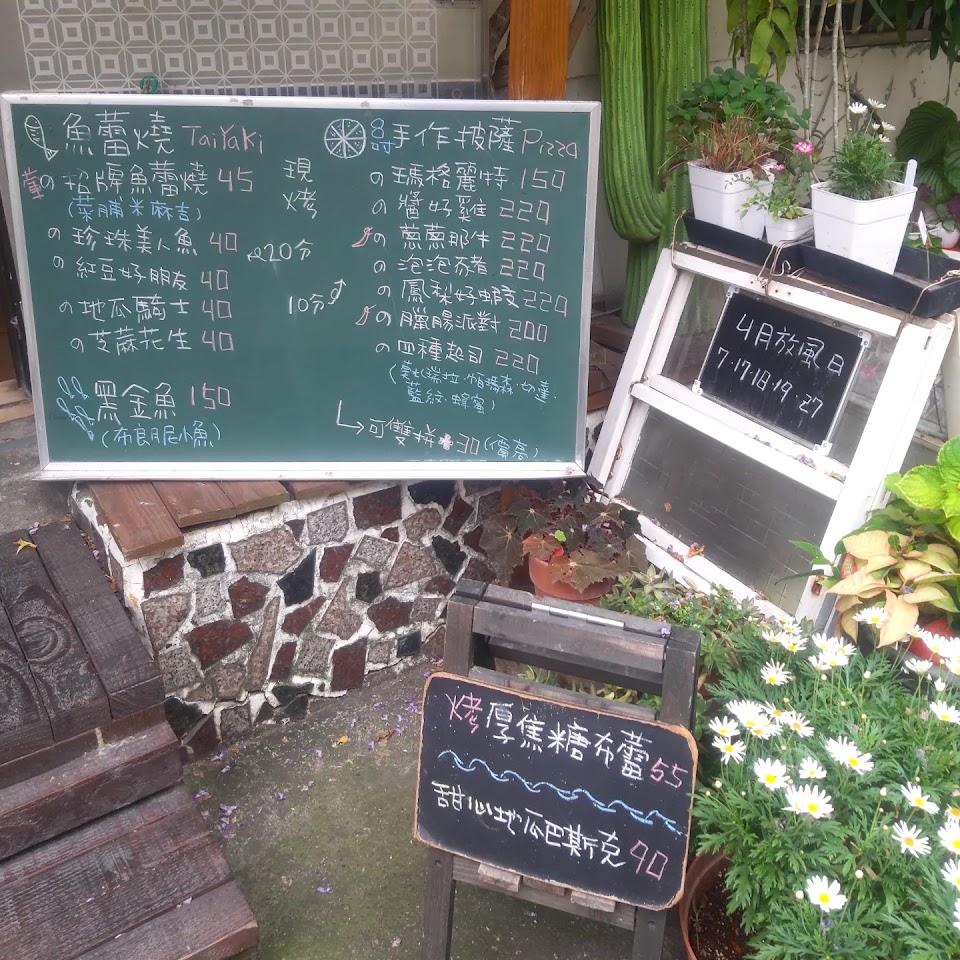 魚蕾燒 TaiYaKi
葷 招牌魚蕾燒 45
(菜脯米麻吉)
珍珠美人魚 40
紅豆好朋友 40
地瓜騎士 40
芝麻花生 40
黑金魚 150
(布朗尼小魚)
現烤
20分
10分
8吋 手作披薩 Pizza
瑪格麗特 150
醬好雞 220
蔥蔥那牛 220
泡泡豬 220
鳳梨好蝦 220
臘腸派對 200
四種起司 220
(莫札瑞拉·帕瑪森·切達
藍紋·蜂蜜)
可雙拼 30 (價高)
4月放風日
7·17·18·19·27
烤厚焦糖布蕾 65
甜心地瓜巴斯克 90